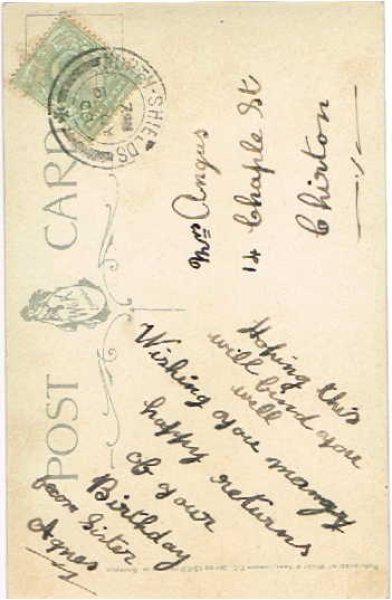 POST CARD
NORTH-SHIELDS
Mrs Angus
14 Chaple St
Chirton
Hoping this
will bind you
well
Wishing you mangy
happy returns
of your
Birthday
from Sister
Agnes